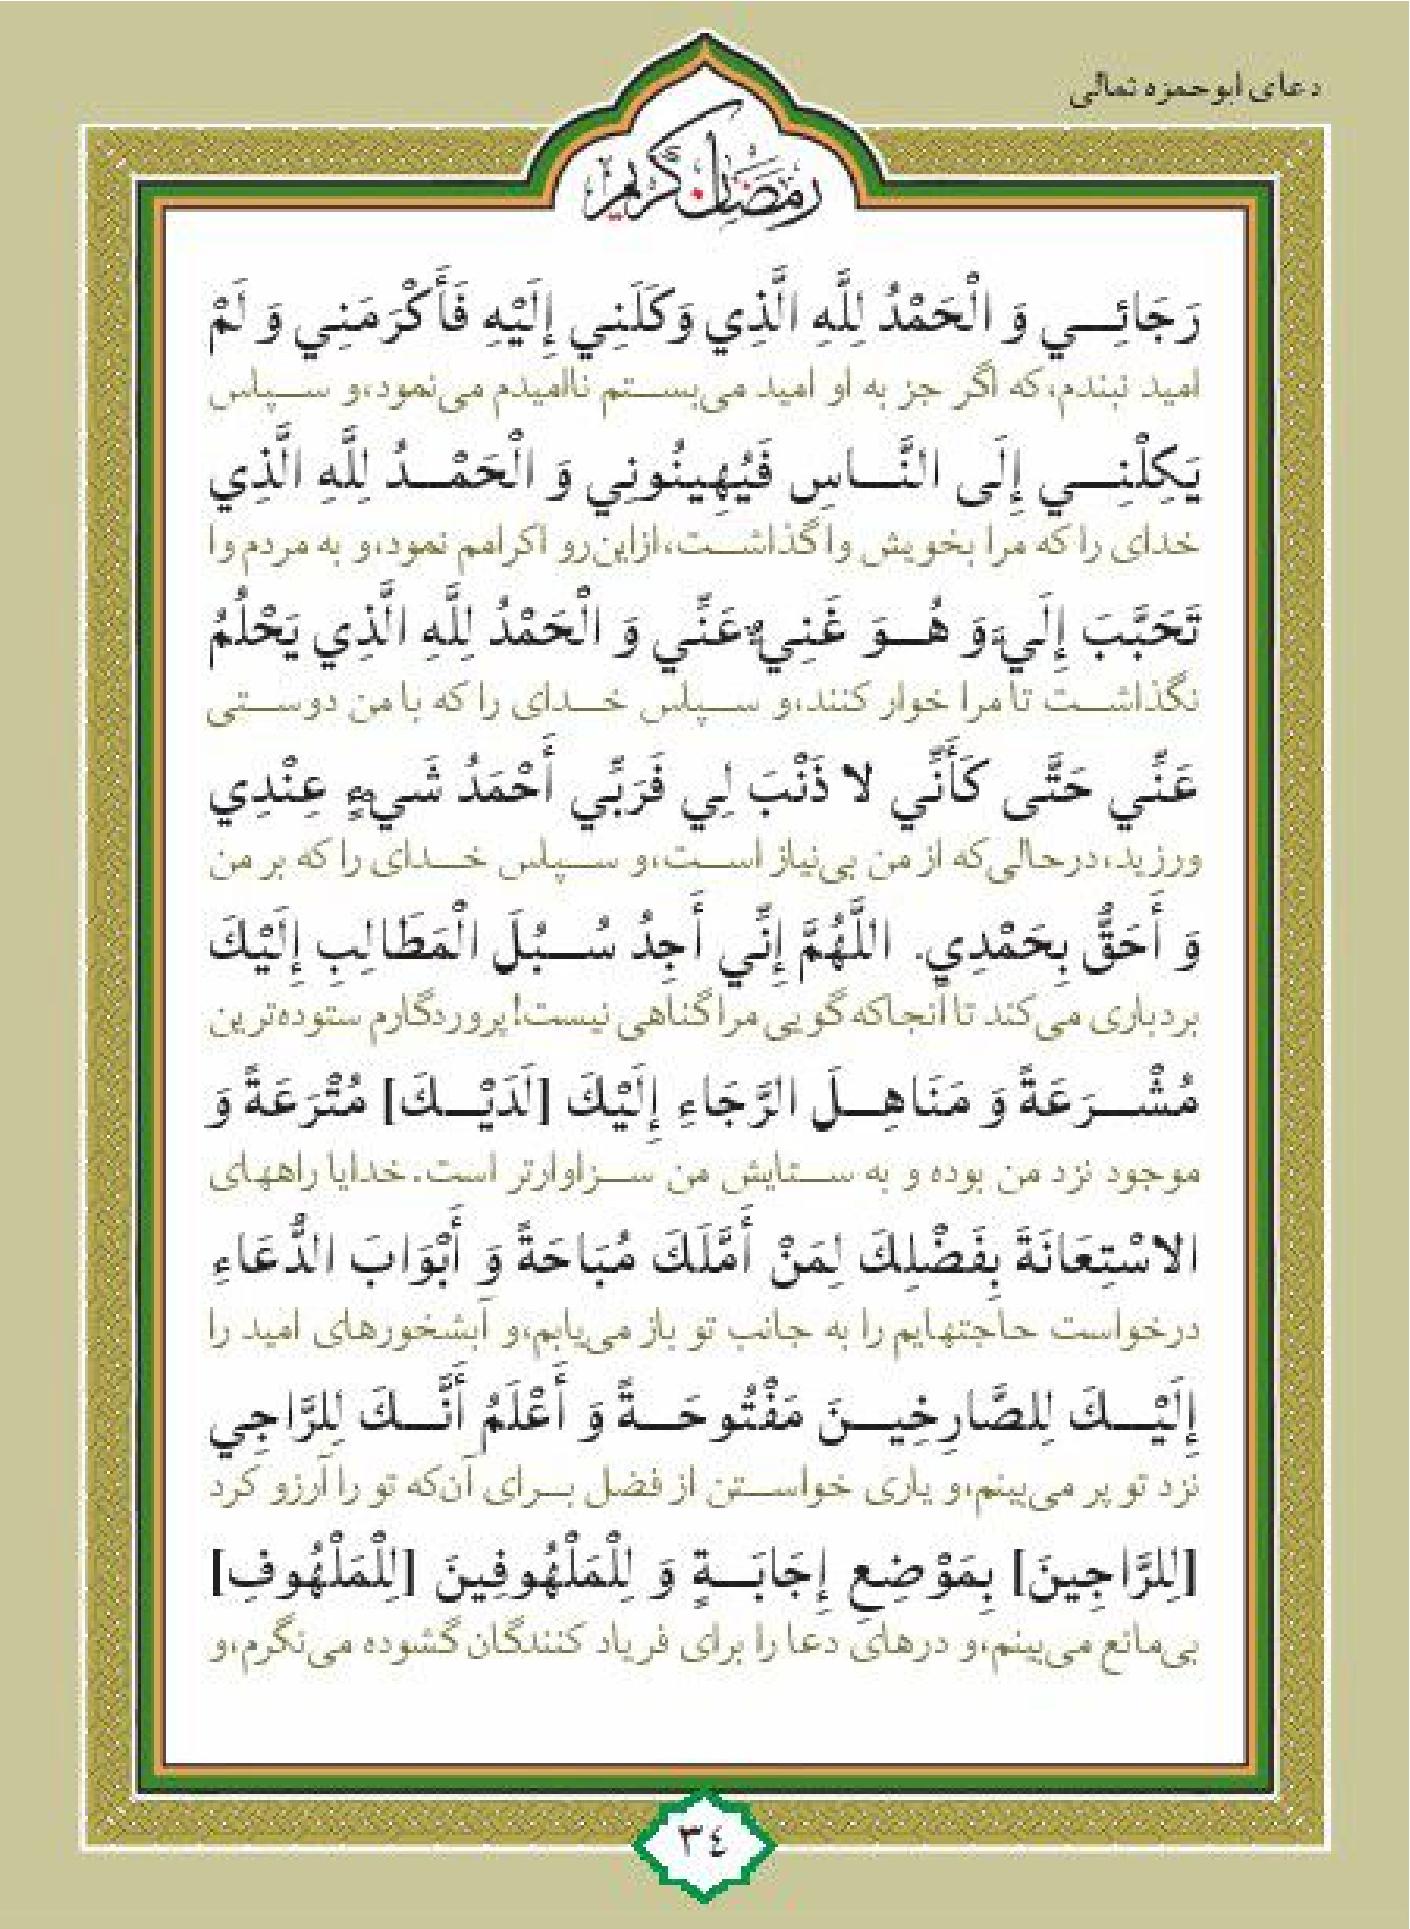 دعای ابوحمزه ثمالی
رمضان كريم
رَجَائِي وَ الْحَمْدُ لِلَّهِ الَّذِي وَكَلَنِي إِلَيْهِ فَأَكْرَمَنِي وَ لَمْ
امید نبندم، که اگر جز به او امید می‌بستم ناامیدم می‌نمود، و سپاس
يَكِلْنِي إِلَى النَّاسِ فَيُهِينُونِي وَ الْحَمْدُ لِلَّهِ الَّذِي
خدای را که مرا بخویش واگذاشت، ازاین‌رو اکرامم نمود، و به مردم وا
تَحَبَّبَ إِلَيَّ وَ هُوَ غَنِيٌّ عَنِّي وَ الْحَمْدُ لِلَّهِ الَّذِي يَحْلُمُ
نگذاشت تا مرا خوار کنند، و سپاس خدای را که با من دوستی
عَنِّي حَتَّى كَأَنِّي لا ذَنْبَ لِي فَرَبِّي أَحْمَدُ شَيْءٍ عِنْدِي
ورزید، درحالی‌که از من بی‌نیاز است، و سپاس خدای را که بر من
وَ أَحَقُّ بِحَمْدِي. اللَّهُمَّ إِنِّي أَجِدُ سُبُلَ الْمَطَالِبِ إِلَيْكَ
بردباری می‌کند تا آنجاکه گویی مرا گناهی نیست! پروردگارم ستوده‌ترین
مُشْرَعَةً وَ مَنَاهِلَ الرَّجَاءِ إِلَيْكَ [لَدَيْكَ] مُتْرَعَةً وَ
موجود نزد من بوده و به ستایش من سزاوارتر است. خدایا راههای
الاسْتِعَانَةَ بِفَضْلِكَ لِمَنْ أَمَّلَكَ مُبَاحَةً وَ أَبْوَابَ الدُّعَاءِ
درخواست حاجتهایم را به جانب تو باز می‌یابم، و آبشخورهای امید را
إِلَيْكَ لِلصَّارِخِينَ مَفْتُوحَةً وَ أَعْلَمُ أَنَّكَ لِلرَّاجِي
نزد تو پر می‌بینم، و یاری خواستن از فضل برای آن‌که تو را آرزو کرد
[لِلرَّاجِينَ] بِمَوْضِعِ إِجَابَةٍ وَ لِلْمَلْهُوفِينَ [لِلْمَلْهُوفِ]
بی‌مانع می‌بینم، و درهای دعا را برای فریاد کنندگان گشوده می‌نگرم، و
٣٤